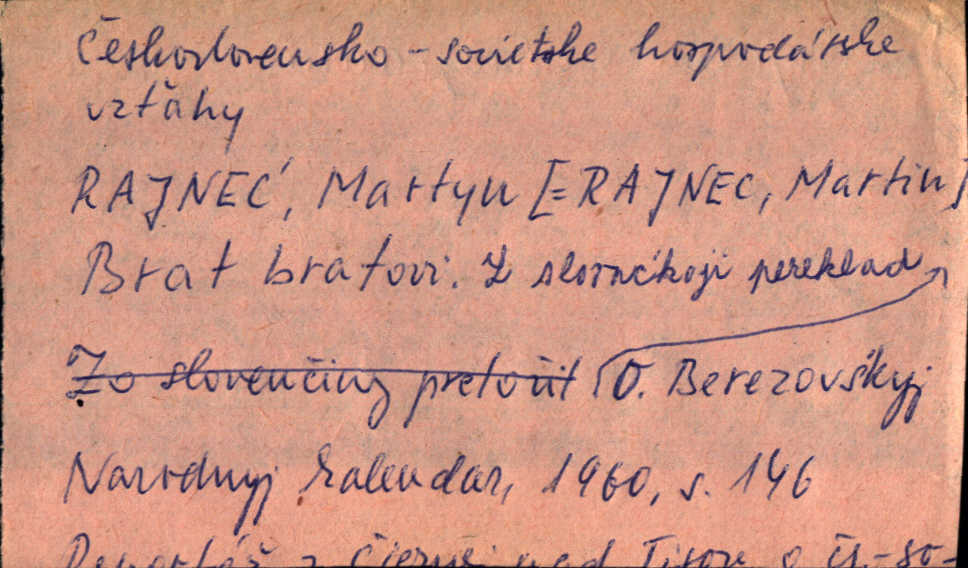 Československo-sovietske hospodárske
vzťahy
RAJNEC', Martyn [= RAJNEC, Martin]
Brat bratovi. Z slovackoji pereklad
Zo slovenčiny pretočil O. Berezovśkyj
Narodnyj kalendar, 1960, s. 146
Reportáž z Čiernej nad Tisou o čs.-so-